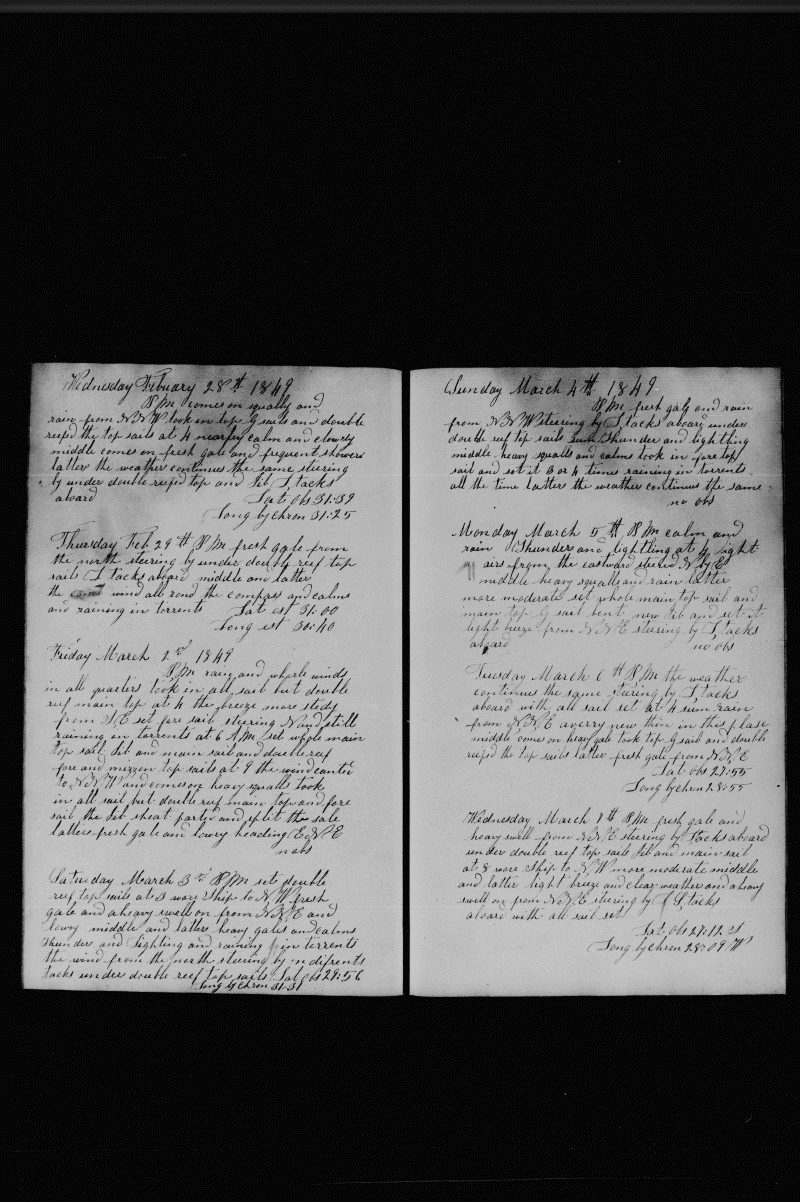 Wednesday Febuary 28th 1849
P,M comes on squally and
rain from N,N,W took in top g sails and double
reefed the top sails at 4 nearley calm and clowdy
middle comes on fresh gale and frequent showers
latter the weather continues the same steering
by under double reefed top and jib S,tacks
aboard Lat obs 31:39
Long by chron 31:25
Thursday Feb 29th P,M fresh gale from
the north steering by under double reef top
sails S tacks aboard middle and latter
the wind all round the compass and calms
and raining in torrents Lat est 31:00
Long est 30:40
Friday March 2nd 1849
P,M rain, and wherle winds
in all quarters took in all sail but double
reef main top at 4 the breeze more stedy
from S,E set fore sail steering N and still
raining in torrents at 6 A,M set whole main
top sail jib and main sail and double reef
fore and mizzen top sails at 9 the wind canted
to N,N,W and comes on heavy squalls took
in all sail but double reef main top and fore
sail the jib sheat parted and split the sale
latter fresh gale and lowry heading E,N,E
n obs
Saturday March 3rd P,M sets double
reef top sails at 3 wore ship to N,W fresh
gale and a heavy swell on from N,N,E and
lowry middle and latter heavy gales and calms
thunder and lighting and raining in torrents
the wind from the north steering by on difrents
tacks under double reef top sails Lat obs 29:56
Long by chron 31:31
Sunday March 4th 1849
P,M fresh galy and rain
from N,N,W steering by S tacks aboard under
double reef top sails thunder and lightling
middle heavy squalls and calms took in fore top
sail and set it 3 or 4 times raining in torrents
all the time latters the weather continues the same
no obs
Monday March 5th P,M calm and
rain thunder and lightling at 4 light
airs from the eastward steered N by E
middle heavy squalls and rain latter
more moderate set whole main top sail and
main top g sail bent new jib and set it
light breeze from N,N,E steering by S,tacks
aboard no obs
Tuesday March 6th P,M the weather
continues the same steering by S,tacks
aboard with all sail set at 4 rain
from N,N,E a verry new thin in this plase
middle come on heavy gale took top g sail and double
reefed the top sails latter fresh gale from N,N,E
Lat obs 27:55
Long by chron 28:55
Wednesday March 7th P,M fresh gale and
heavy swell from N,N,E steering by S,tacks aboard
under double reef top sails jib and main sail
at 8 wore ship to N,W more moderate middle
and latter light breeze and clear weather and a heavy
swell on from N,N,E steering by S,tacks
aboard with all sail set
Lat, obs 27:12 S
Long by chron 28:09 W